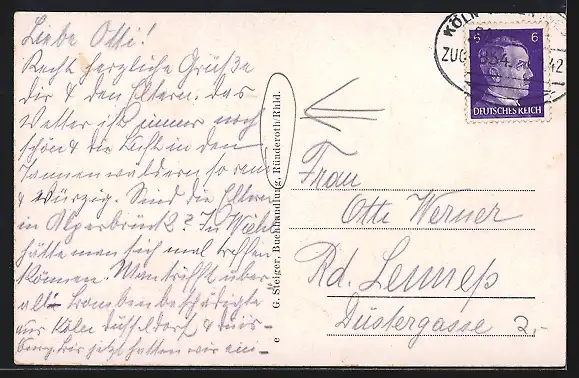 Liebe Otti!
Recht herzliche Grüße
dir & den Eltern. Das
Wetter ist immer noch
schön & die Luft in den
Tannenwäldern so rein
& würzig. Sind die Eltern
in Alperbrück? In Wiehl
hätte man sich mal treffen
können. Man trifft über-
all Bombenbeschädigte
aus Köln Düsseldorf & Duis-
burg. Bis jetzt hatten wir
e G. Steiger, Buchhandlung, Ründeroth/Rhld.
KÖLN
ZUG 42
6 6
DEUTSCHES REICH
Frau
Otti Werner
Rd. Lennep
Düstergasse 2.-